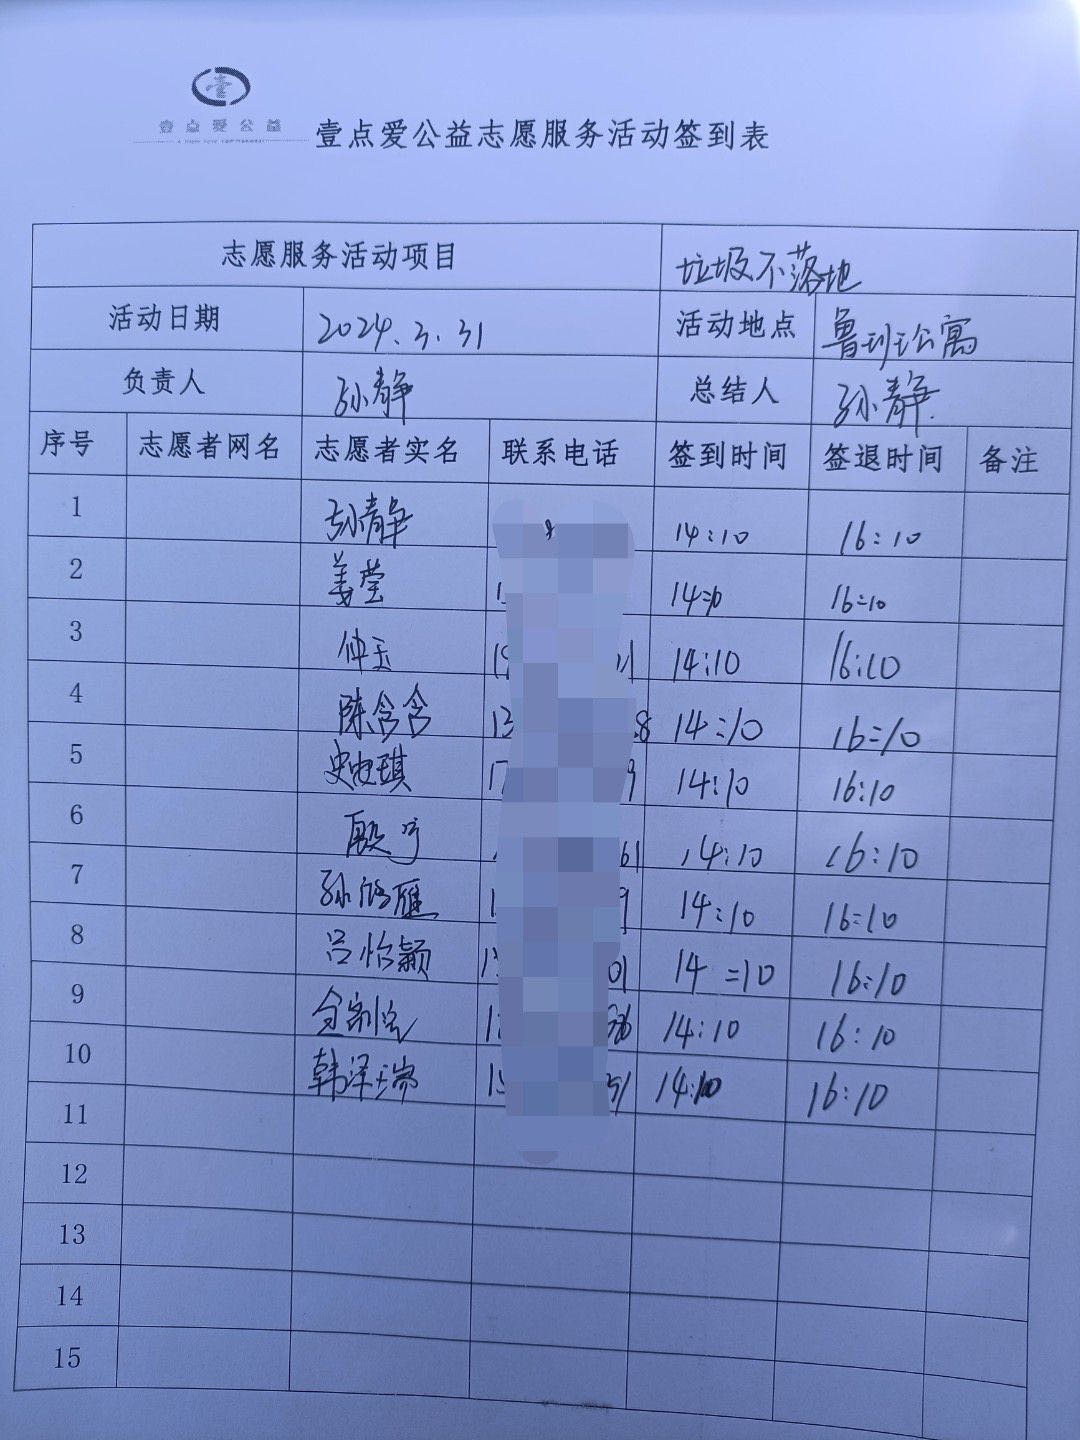 壹点爱公益
壹点爱公益志愿服务活动签到表
志愿服务活动项目 垃圾不落地
活动日期 2024.3.31 活动地点 鲁班公寓
负责人 孙静 总结人 孙静
序号 志愿者网名 志愿者实名 联系电话 签到时间 签退时间 备注
1 孙静 14:10 16:10
2 姜莹 14:10 16:10
3 仲玉 14:10 16:10
4 陈含含 13 28 14:10 16:10
5 史安琪 17 9 14:10 16:10
6 殷 61 14:10 16:10
7 孙皓雁 1 9 14:10 16:10
8 吕怡颖 01 14:10 16:10
9 14:10 16:10
10 韩泽瑞 15 51 14:10 16:10
11
12
13
14
15